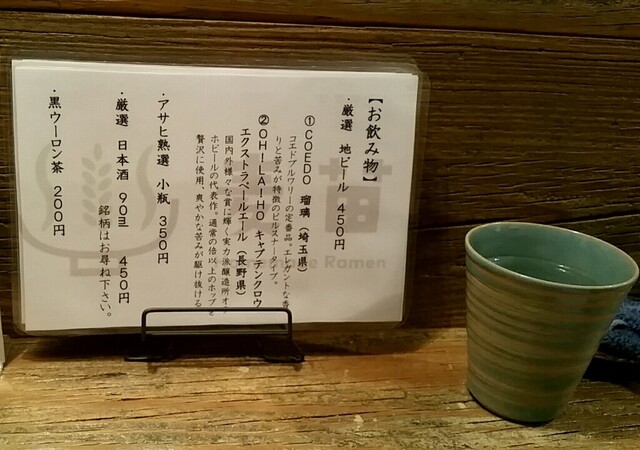 【お飲み物】
・厳選 地ビール 450円
①COEDO 瑠璃(埼玉県)
コエドブルワリーの定番品。エレガントな香
りと苦みが特徴のピルスナータイプ。
②OH!LA!HO キャプテンクロウ
エクストラペールエール(長野県)
国内外様々な賞に輝く実力派醸造所オラ
ホビールの代表作。通常の倍以上のホップを
贅沢に使用、爽やかな苦みが駆け抜ける
・アサヒ熟選 小瓶 350円
・厳選 日本酒 90ml 450円
銘柄はお尋ね下さい。
・黒ウーロン茶 200円
苗
Ramen